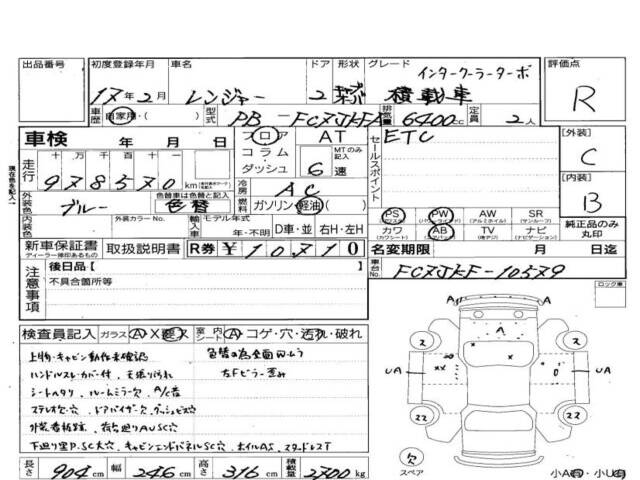 出品番号 初度登録年月 車名 ドア 形状 グレード 評価点
インタークーラーターボ
17年2月 レンジャー 2 積載車 R
車歴 自家用・( ) 型式 PB-FC7JKFA 排気量 6400cc 定員 2人
車検 年 月 日 フロア AT セールスポイント ETC 【外装】
C
走行 十万 万 千 百 十 一 コラム MTのみ記入
978570km ダッシュ 6速 【内装】
B
現在色を記入 冷房 AC
外装色 ブルー 色替車は色替と記入 色替 燃料 ガソリン・軽油・( ) PS PW AW SR
(パワーウインド) (アルミホイル) (サンルーフ)
内装色 外装カラーNo. 輸入車 モデル年式 カワ AB TV ナビ 純正品のみ丸印
年・不明 D車・並 右H・左H (カワシート) (エアバッグ) (ナビゲーション)
新車保証書 取扱説明書 R券 ¥10710 名変期限 月 日迄
ディーラー捺印あるもの
注意事項 後日品【 】 車台No. FC7JKF-10579
不具合箇所等 ロック車
検査員記入 ガラス A・X・要ス 室内シート A・コゲ・穴・汚れ・破れ
上物・キャビン動作未確認 色替の為全面
ハンドルスレ・カバー付 天張り汚れ 左Fピラー歪み
シートヘタリ ルームミラー欠 A/C
ステレオ欠・穴 ドアバイザー欠
外装看板跡 荷台廻りAUSC穴
下廻り里P.SC大穴 キャビンエンドパネルSC穴 ホイルAS スタッドレスT
長さ 904cm 幅 246cm 高さ 316cm 積載量 2700kg
A A
A
UA UA
22 22
22 22
欠
スペア
小A有・小U有